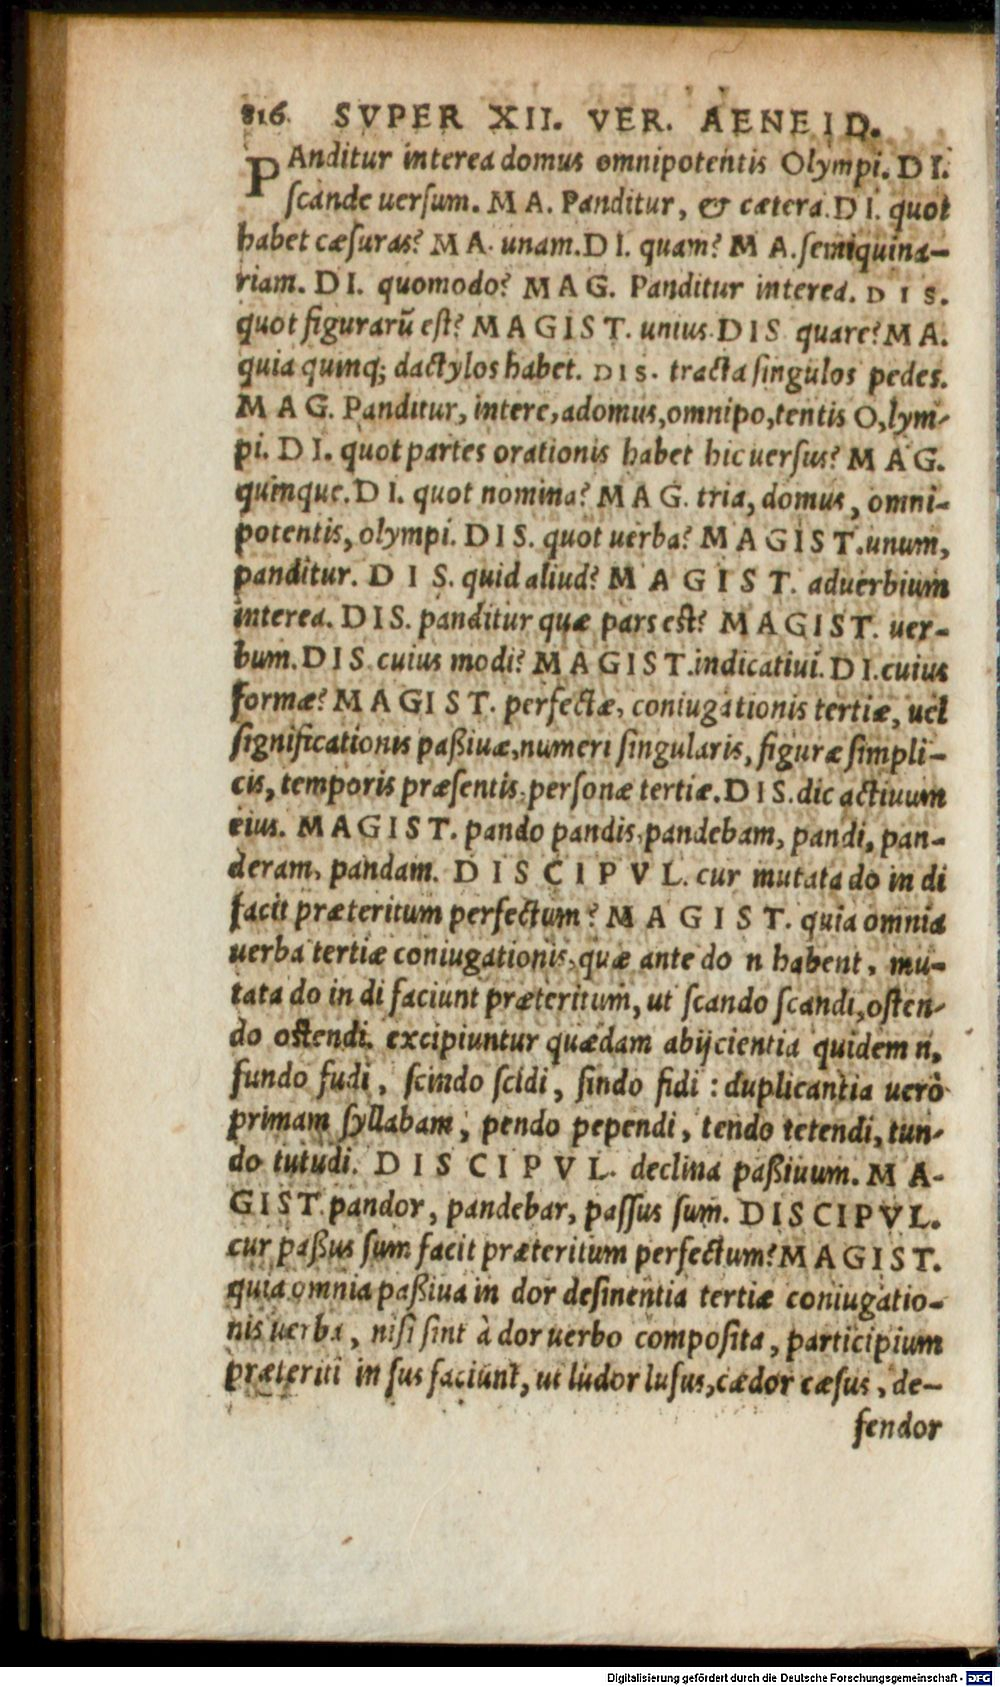 816. SVPER XII. VER. AENEID.
PAnditur interea domus omnipotentis Olympi. DI.
ſcande uerſum. MA. Panditur, & cætera. DI. quot
habet cæſuras? MA. unam. DI. quam? MA. ſemiquina-
riam. DI. quomodo? MAG. Panditur interea. DIS.
quot figurarũ eſt? MAGIST. unius. DIS. quare? MA.
quia quinq; dactylos habet. DIS. tracta ſingulos pedes.
MAG. Panditur, intere, adomus, omnipo, tentis O, lym-
pi. DI. quot partes orationis habet hic uerſus? MAG.
quinque. DI. quot nomina? MAG. tria, domus, omni-
potentis, olympi. DIS. quot uerba? MAGIST. unum,
panditur. DIS. quid aliud? MAGIST. aduerbium
interea. DIS. panditur quæ pars eſt? MAGIST. uer-
bum. DIS. cuius modi? MAGIST. indicatiui. DI. cuius
formæ? MAGIST. perfectæ, coniugationis tertiæ, uel
ſignificationis paßiuæ, numeri ſingularis, figuræ ſimpli-
cis, temporis præſentis, perſonæ tertiæ. DIS. dic actiuum
eius. MAGIST. pando pandis, pandebam, pandi, pan-
deram, pandam. DISCIPVL. cur mutata do in di
facit præteritum perfectum? MAGIST. quia omnia
uerba tertiæ coniugationis, quæ ante do n habent, mu-
tata do in di faciunt præteritum, ut ſcando ſcandi, oſten-
do oſtendi. excipiuntur quædam abijcientia quidem n,
fundo fudi, ſcindo ſcidi, findo fidi : duplicantia uerò
primam ſyllabam, pendo pependi, tendo tetendi, tun-
do tutudi. DISCIPVL. declina paßiuum. MA-
GIST. pandor, pandebar, paſſus ſum. DISCIPVL.
cur paßus ſum facit præteritum perfectum? MAGIST.
quia omnia paßiua in dor deſinentia tertiæ coniugatio-
nis uerba, niſi ſint à dor uerbo compoſita, participium
præteriti in ſus faciunt, ut ludor luſus, cædor cæſus, de-
fendor
Digitalisierung gefördert durch die Deutsche Forschungsgemeinschaft - DFG